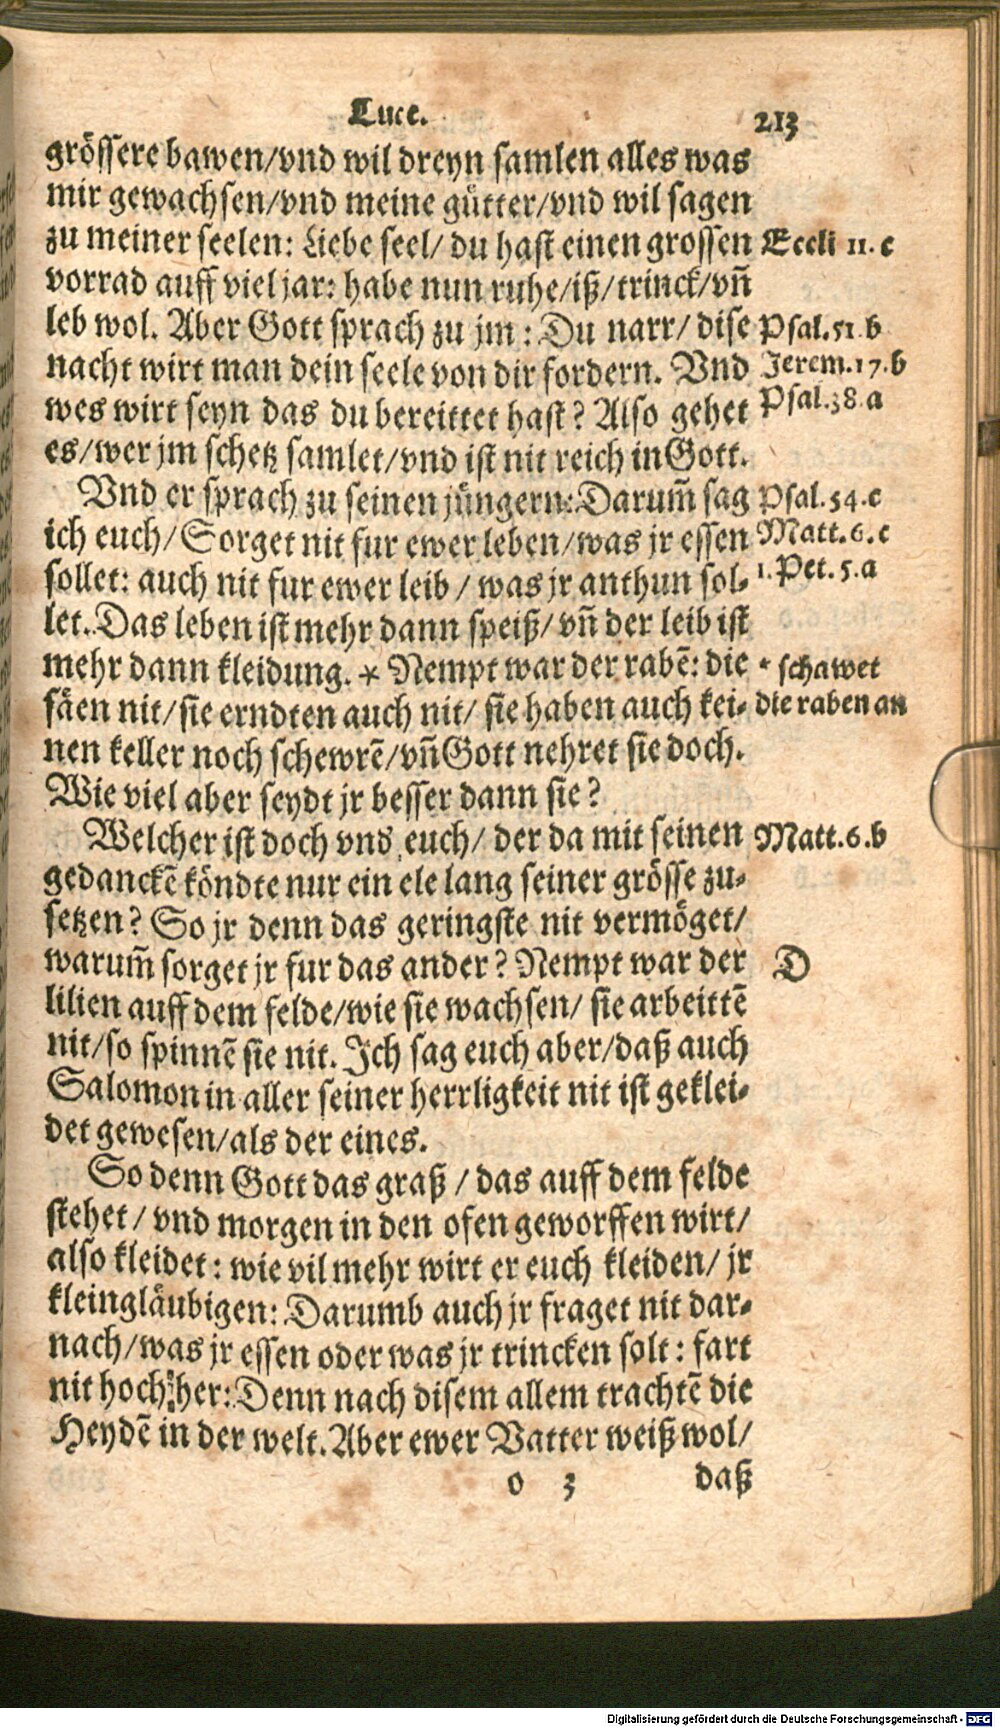 Luce.
213
grössere bawen/vnd wil dreyn samlen alles was
mir gewachsen/vnd meine gütter/vnd wil sagen
zu meiner seelen: Liebe seel/ du hast einen grossen
Eccli 11. c
vorrad auff viel jar: habe nun ruhe/iß/trinck/vn̄
leb wol. Aber Gott sprach zu jm: Du narr/ dise
Psal. 51. b
nacht wirt man dein seele von dir fordern. Vnd
Jerem. 17. b
wes wirt seyn das du bereittet hast? Also gehet
Psal. 38. a
es/wer jm schetz samlet/vnd ist nit reich in Gott.
Vnd er sprach zu seinen jüngern: Darum̄ sag
Psal. 54. c
ich euch/ Sorget nit fur ewer leben/was jr essen
Matt. 6. c
sollet: auch nit fur ewer leib / was jr anthun sol-
1. Pet. 5. a
let. Das leben ist mehr dann speiß/ vn̄ der leib ist
mehr dann kleidung. * Nempt war der rabē: die
* schawet
säen nit/ sie erndten auch nit/ sie haben auch kei-
die raben an
nen keller noch schewrē/vn̄ Gott nehret sie doch.
Wie viel aber seydt jr besser dann sie?
Welcher ist doch vnd euch/ der da mit seinen
Matt. 6. b
gedanckē köndte nur ein ele lang seiner grösse zu-
setzen? So jr denn das geringste nit vermöget/
warum̄ sorget jr fur das ander? Nempt war der
D
lilien auff dem felde/wie sie wachsen/ sie arbeittē
nit/so spinnē sie nit. Ich sag euch aber/daß auch
Salomon in aller seiner herrligkeit nit ist geklei-
det gewesen/als der eines.
So denn Gott das graß / das auff dem felde
stehet / vnd morgen in den ofen geworffen wirt/
also kleidet: wie vil mehr wirt er euch kleiden/ jr
kleingläubigen: Darumb auch jr fraget nit dar-
nach/was jr essen oder was jr trincken solt: fart
nit hoch her: Denn nach disem allem trachtē die
Heydē in der welt. Aber ewer Vatter weiß wol/
o 3
daß
Digitalisierung gefördert durch die Deutsche Forschungsgemeinschaft - DFG